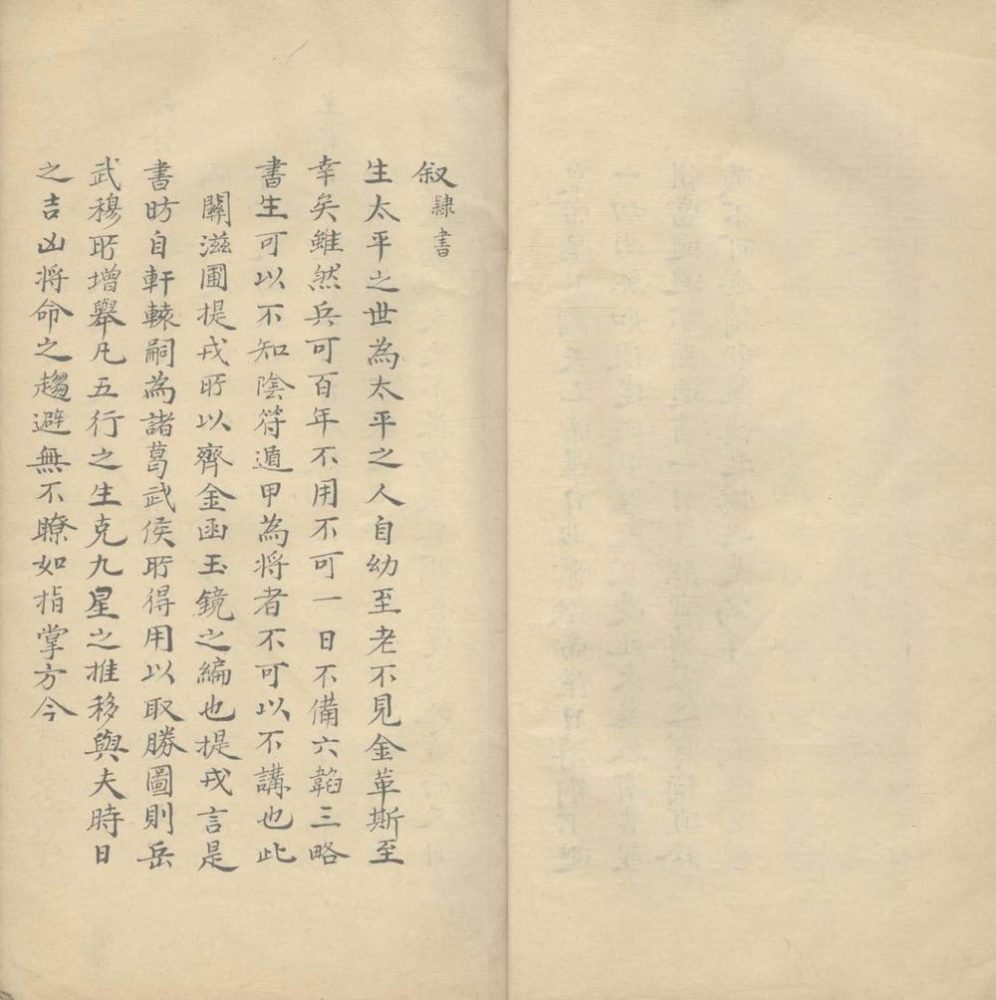 叙隸書
生太平之世為太平之人自幼至老不見金革斯至
幸矣雖然兵可百年不用不可一日不備六韜三略
書生可以不知陰符遁甲為将者不可以不講也此
關滋圃提戎所以齊金函玉鏡之編也提戎言是
書昉自軒轅嗣為諸葛武侯所得用以取勝圖則岳
武穆所增舉凡五行之生克九星之推移與夫時日
之吉凶将命之趨避無不瞭如指掌方今